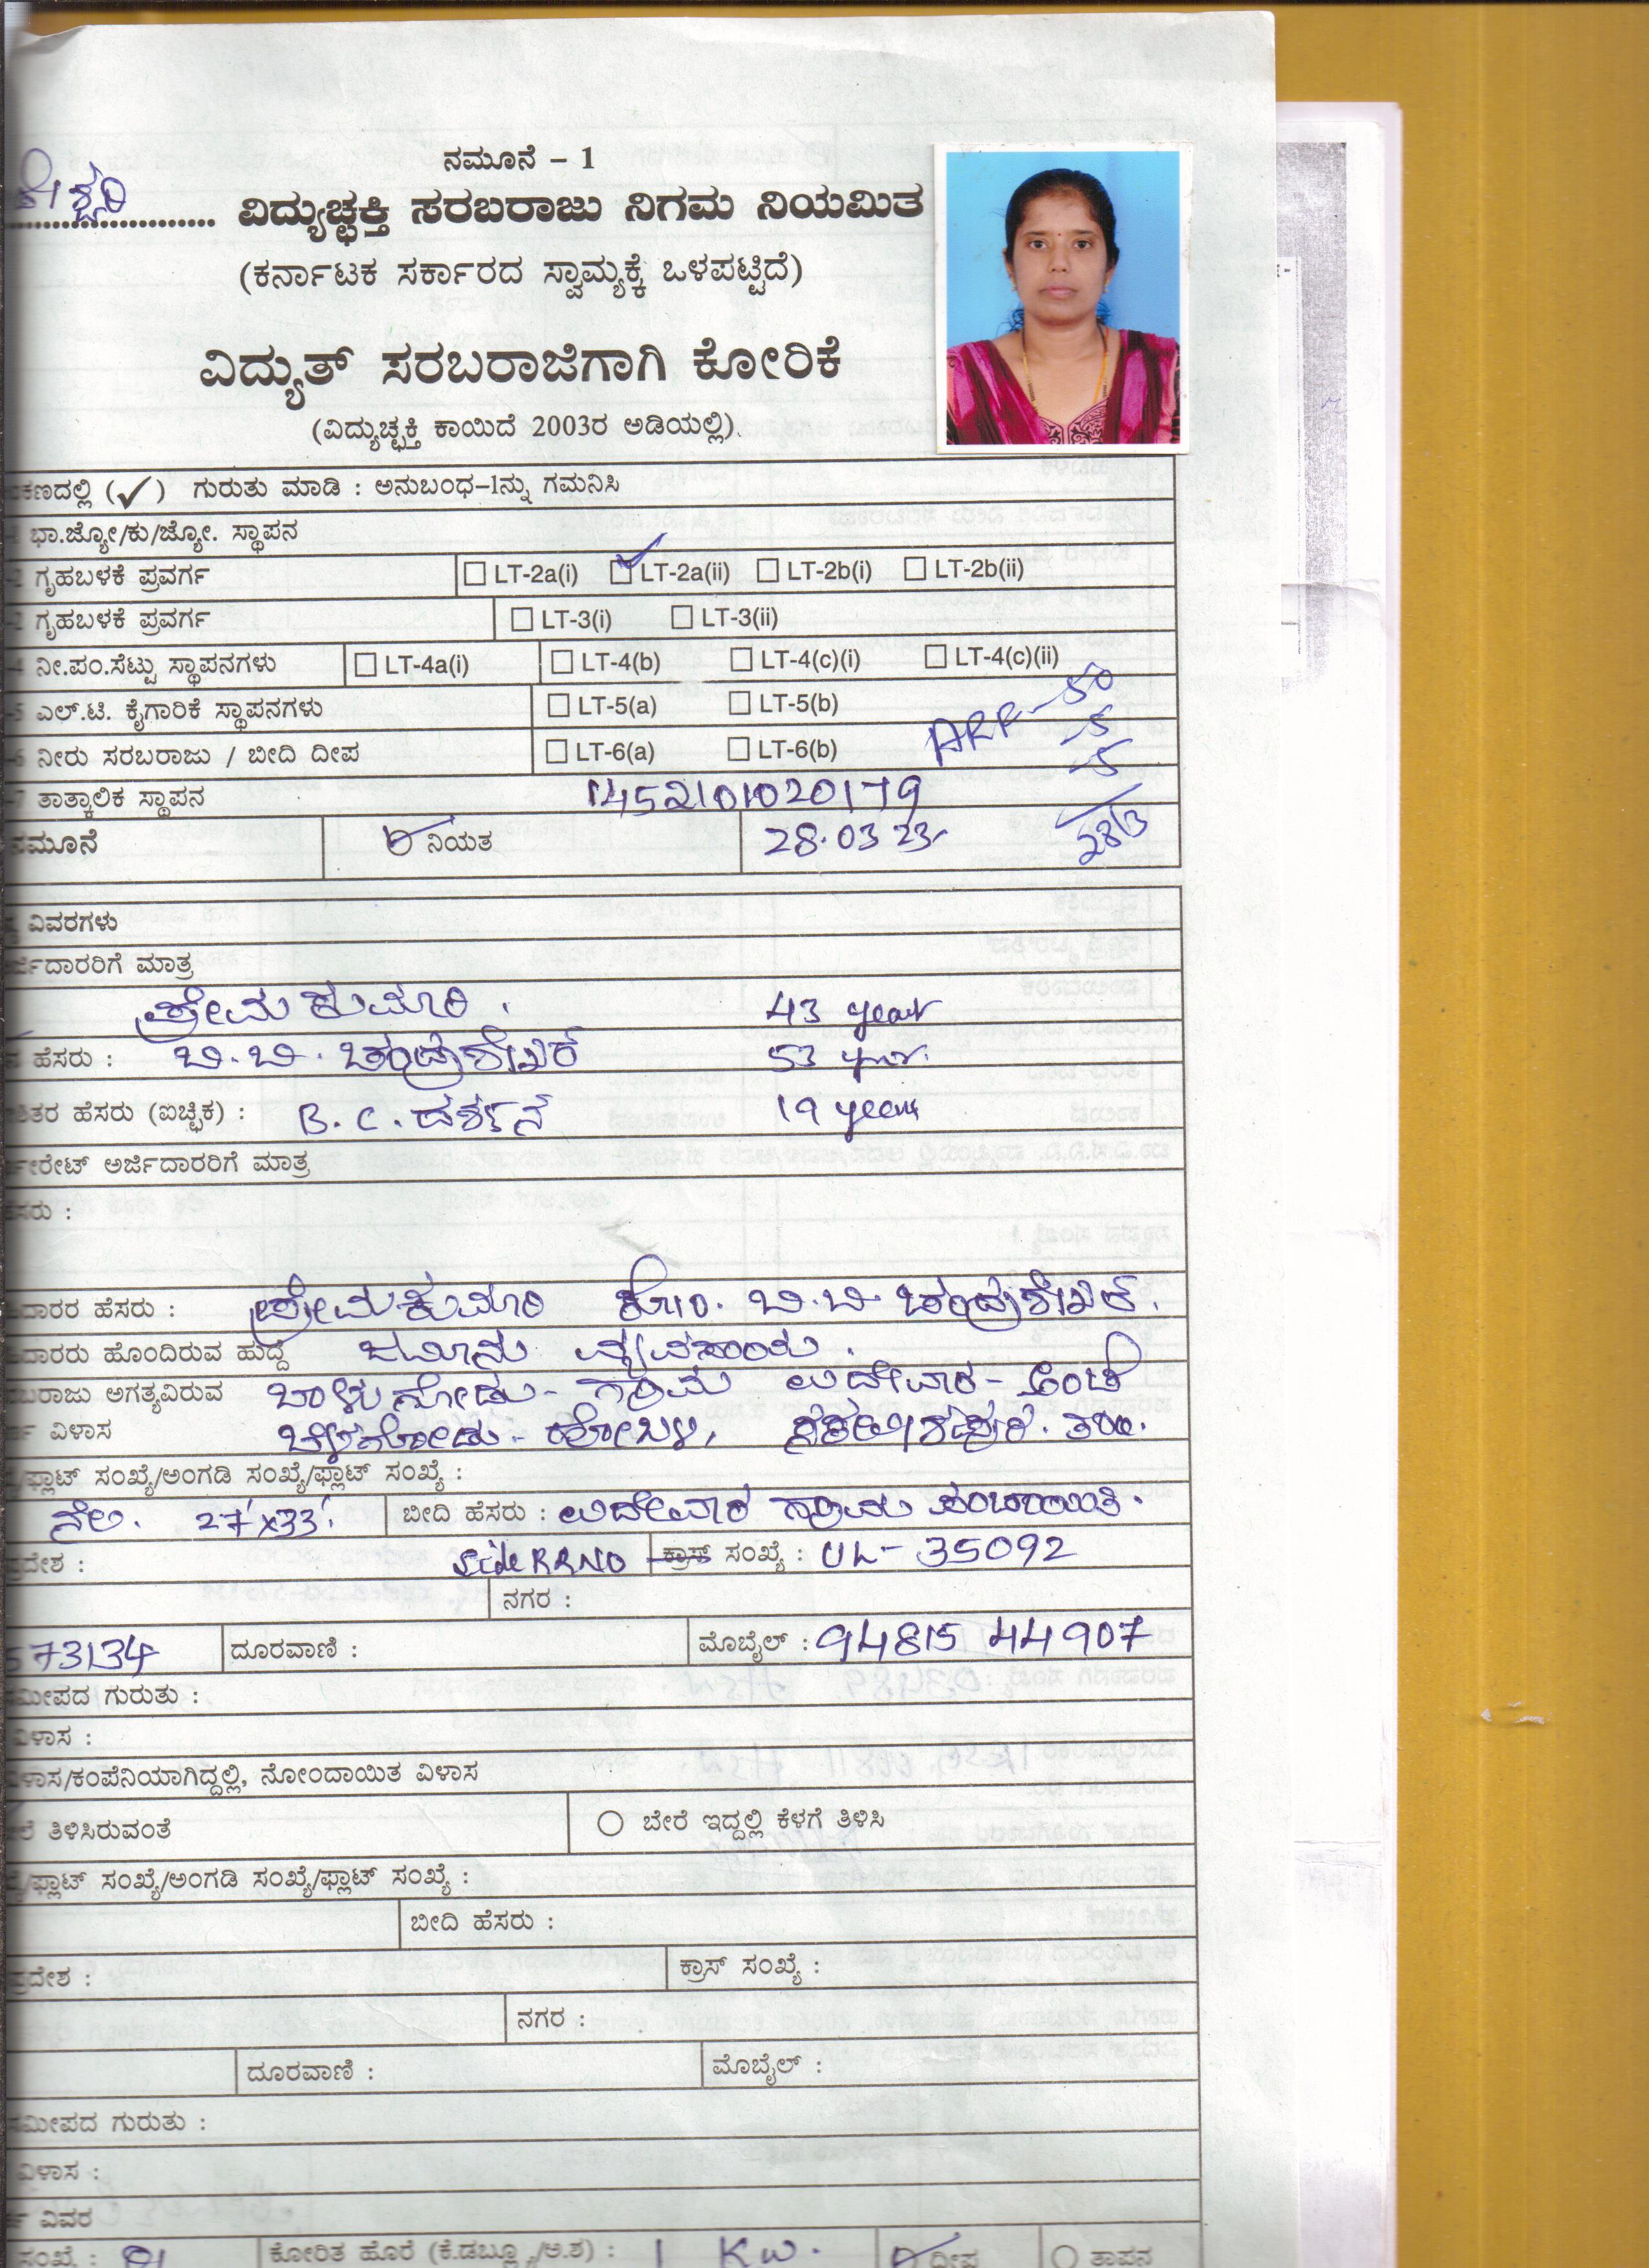 ನಮೂನೆ – 1
................ ವಿದ್ಯುಚ್ಛಕ್ತಿ ಸರಬರಾಜು ನಿಗಮ ನಿಯಮಿತ
(ಕರ್ನಾಟಕ ಸರ್ಕಾರದ ಸ್ವಾಮ್ಯಕ್ಕೆ ಒಳಪಟ್ಟಿದೆ)
ವಿದ್ಯುತ್ ಸರಬರಾಜಿಗಾಗಿ ಕೋರಿಕೆ
(ವಿದ್ಯುಚ್ಛಕ್ತಿ ಕಾಯಿದೆ 2003ರ ಅಡಿಯಲ್ಲಿ)
(✓) ಗುರುತು ಮಾಡಿ : ಅನುಬಂಧ–1ನ್ನು ಗಮನಿಸಿ
ಭಾ.ಜ್ಯೋ/ಕು/ಜ್ಯೋ. ಸ್ಥಾಪನ
ಗೃಹಬಳಕೆ ಪ್ರವರ್ಗ LT-2a(i) LT-2a(ii) LT-2b(i) LT-2b(ii)
ಗೃಹಬಳಕೆ ಪ್ರವರ್ಗ LT-3(i) LT-3(ii)
ನೀ.ಪಂ.ಸೆಟ್ಟು ಸ್ಥಾಪನಗಳು LT-4a(i) LT-4(b) LT-4(c)(i) LT-4(c)(ii)
ಎಲ್.ಟಿ. ಕೈಗಾರಿಕೆ ಸ್ಥಾಪನಗಳು LT-5(a) LT-5(b) ARF – 50
ನೀರು ಸರಬರಾಜು / ಬೀದಿ ದೀಪ LT-6(a) LT-6(b) -5
-5
ತಾತ್ಕಾಲಿಕ ಸ್ಥಾಪನ 1452101020179
ನಮೂನೆ ನಿಯತ 28.03 23 28/3
ವಿವರಗಳು
ಮಾತ್ರ
ಪ್ರೇಮಕುಮಾರಿ . 43 year
ಹೆಸರು : ಬಿ.ಬಿ. ಚಂದ್ರಶೇಖರ್ 53
ಹೆಸರು (ಐಚ್ಛಿಕ) : B. C. ದರ್ಶನ್ 19 years
ಅರ್ಜಿದಾರರಿಗೆ ಮಾತ್ರ
ಹೆಸರು : ಪ್ರೇಮಕುಮಾರಿ ಕೋಂ. ಬಿ.ಬಿ. ಚಂದ್ರಶೇಖರ್.
ಹೊಂದಿರುವ ಹುದ್ದೆ ಜಮೀನು ವ್ಯವಸಾಯ .
ಅಗತ್ಯವಿರುವ ಗ್ರಾಮ ಉದೇವಾರ - ಅಂಚೆ
ವಿಳಾಸ ಹೋಬಳಿ, ಸಕಲೇಶಪುರ. ತಾಲ.
ಸಂಖ್ಯೆ/ಅಂಗಡಿ ಸಂಖ್ಯೆ/ಫ್ಲಾಟ್ ಸಂಖ್ಯೆ :
ನೆಲ. 27'x33'. ಬೀದಿ ಹೆಸರು : ಉದೇವಾರ ಗ್ರಾಮ ಪಂಚಾಯಿತಿ.
side RRNO ಕ್ರಾಸ್ ಸಂಖ್ಯೆ : UL- 35092
ನಗರ :
573134 ದೂರವಾಣಿ : ಮೊಬೈಲ್ : 94815 44907
ಗುರುತು :
ವಿಳಾಸ :
ನೋಂದಾಯಿತ ವಿಳಾಸ
ತಿಳಿಸಿರುವಂತೆ ಬೇರೆ ಇದ್ದಲ್ಲಿ ಕೆಳಗೆ ತಿಳಿಸಿ
ಸಂಖ್ಯೆ/ಅಂಗಡಿ ಸಂಖ್ಯೆ/ಫ್ಲಾಟ್ ಸಂಖ್ಯೆ :
ಬೀದಿ ಹೆಸರು :
ಕ್ರಾಸ್ ಸಂಖ್ಯೆ :
ನಗರ :
ದೂರವಾಣಿ : ಮೊಬೈಲ್ :
ಗುರುತು :
ವಿಳಾಸ :
ವಿವರ
ಕೋರಿತ ಹೊರೆ (ಕೆ.ಡಬ್ಲ್ಯೂ/ಅ.ಶ) : 1 KW. ದೀಪ ತಾಪನ